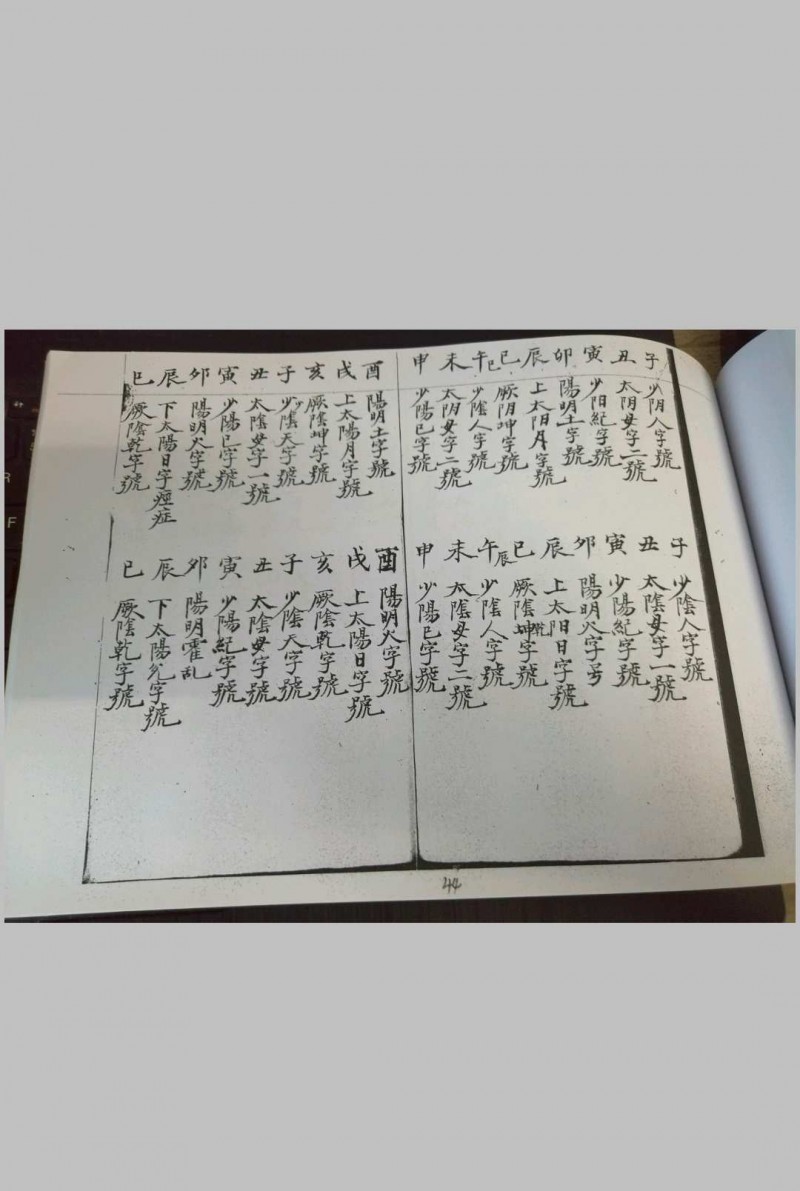 子 少阴人字號
丑 太阴母字二號
寅 少阳紀字號
卯 陽明土字號
辰 上太阳月字號
巳 厥阴坤字號
午 巳 少陰人字號
未 太阴母字二號
申 少陽巳字號
子 少陰人字號
丑 太陰母字一號
寅 少陽紀字號
卯 陽明火字号
辰 上太阳日字號
巳 厥陰坤字號
午 辰 少陰人字號
未 太陰母字二號
申 少陽巳字號
酉 陽明土字號
戌 上太陽月字號
亥 厥陰坤字號
子 少陰天字號
丑 太陰母字一號
寅 少陽巳字號
卯 陽明火字號
辰 下太陽日字痙症
巳 厥陰乾字號
酉 陽明火字號
戌 上太陽日字號
亥 厥陰乾字號
子 少陰天字號
丑 太陰母字號
寅 少陽紀字號
卯 陽明霍乱
辰 下太陽字號
巳 厥陰乾字號
44